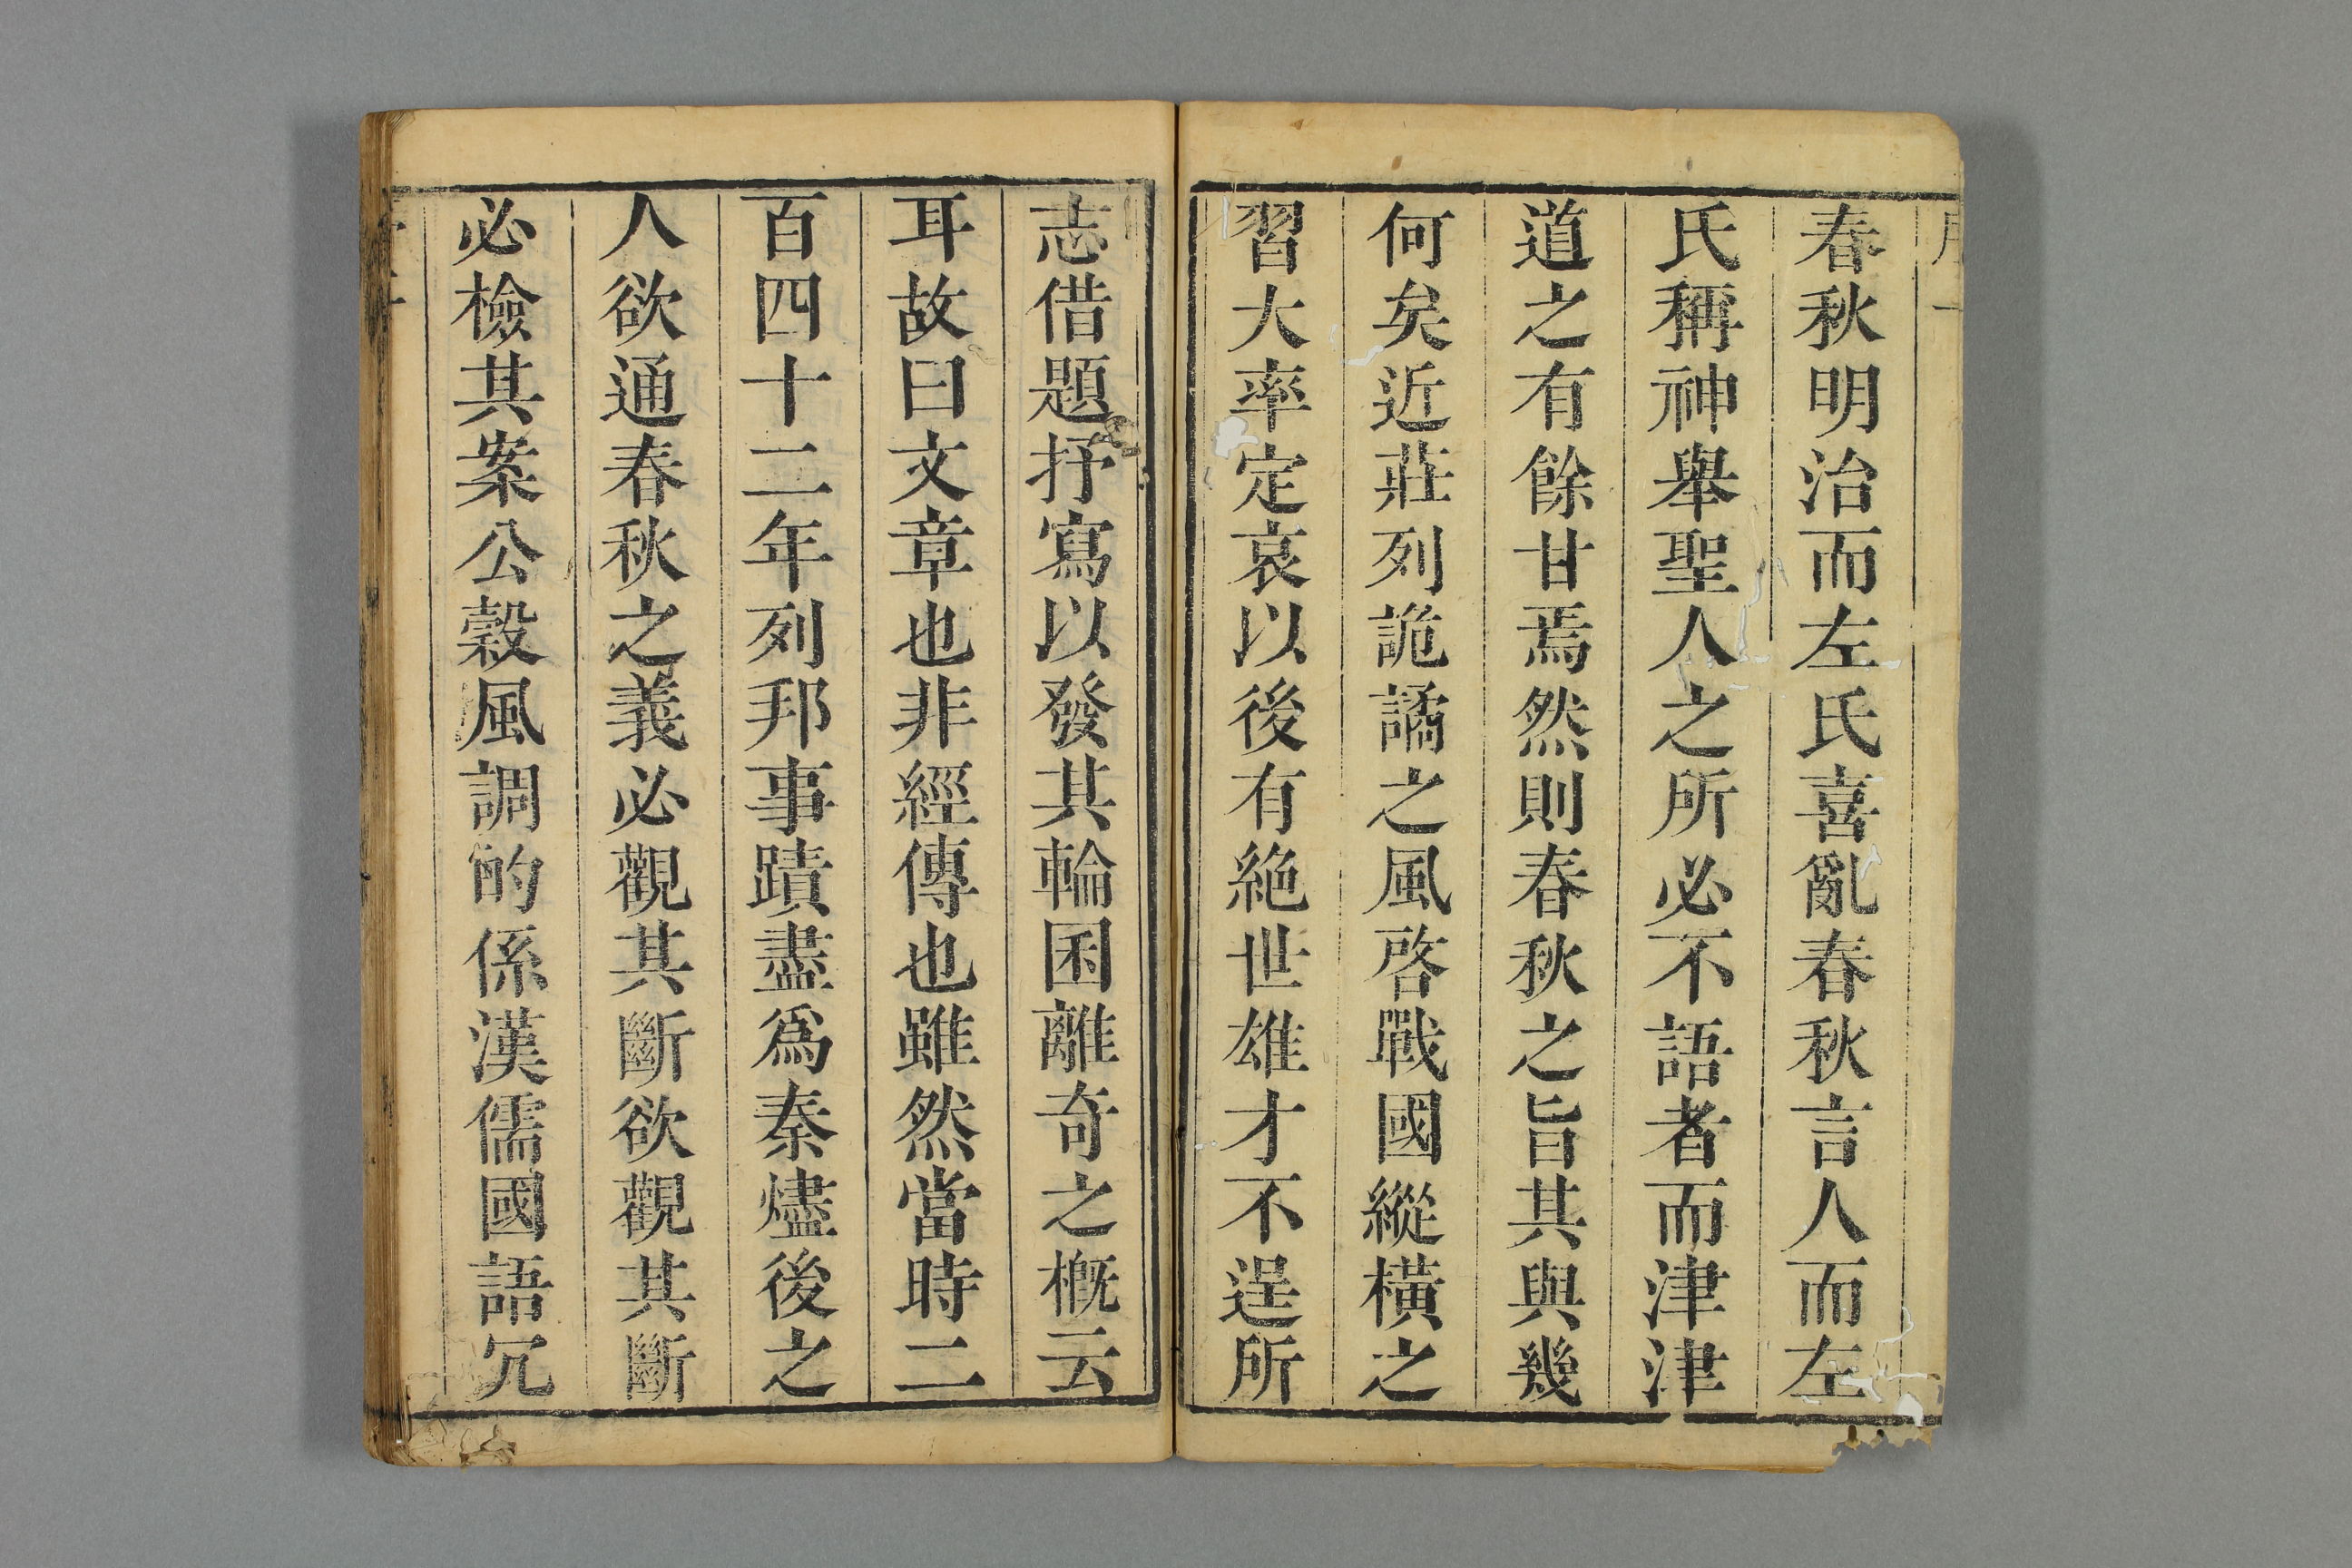 春秋明治而左氏喜亂春秋言人而左
氏稱神舉聖人之所必不語者而津津
道之有餘甘焉然則春秋之旨其與幾
何矣近莊列詭譎之風啓戰國縱橫之
習大率定哀以後有絶世雄才不逞所
志借題抒寫以發其輪囷離奇之槪云
耳故曰文章也非經傳也雖然當時二
百四十二年列邦事蹟盡爲秦燼後之
人欲通春秋之義必觀其斷欲觀其斷
必檢其案公穀風調的係漢儒國語冗